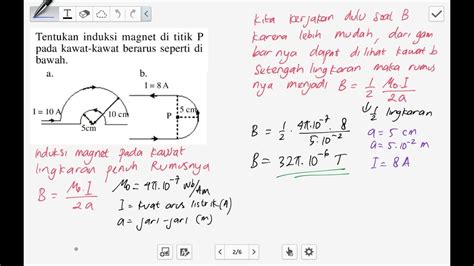 Tentukan induksi magnet di titik P
pada kawat-kawat berarus seperti di
bawah.
a.
b.
I = 8 A
I = 10 A
10 cm
5cm
P
5 cm
Induksi magnet pada kawat
lingkaran penuh Rumusnya
B = μ₀.I / 2a
μ₀ = 4π.10⁻⁷ Wb/Am
I = kuat arus listrik (A)
a = jari-jari (m)
Kita kerjakan dulu soal B
karena lebih mudah, dari gam
barnya dapat di lihat kawat b
Setengah lingkaran maka rumus
nya menjadi B = 1/2 μ₀.I / 2a
↓ 1/2 lingkaran
B = 1/2 . 4π.10⁻⁷ . 8 / 5.10⁻²
a = 5 cm
a = 5.10⁻² m
I = 8 A
B = 32π.10⁻⁶ T
2/6